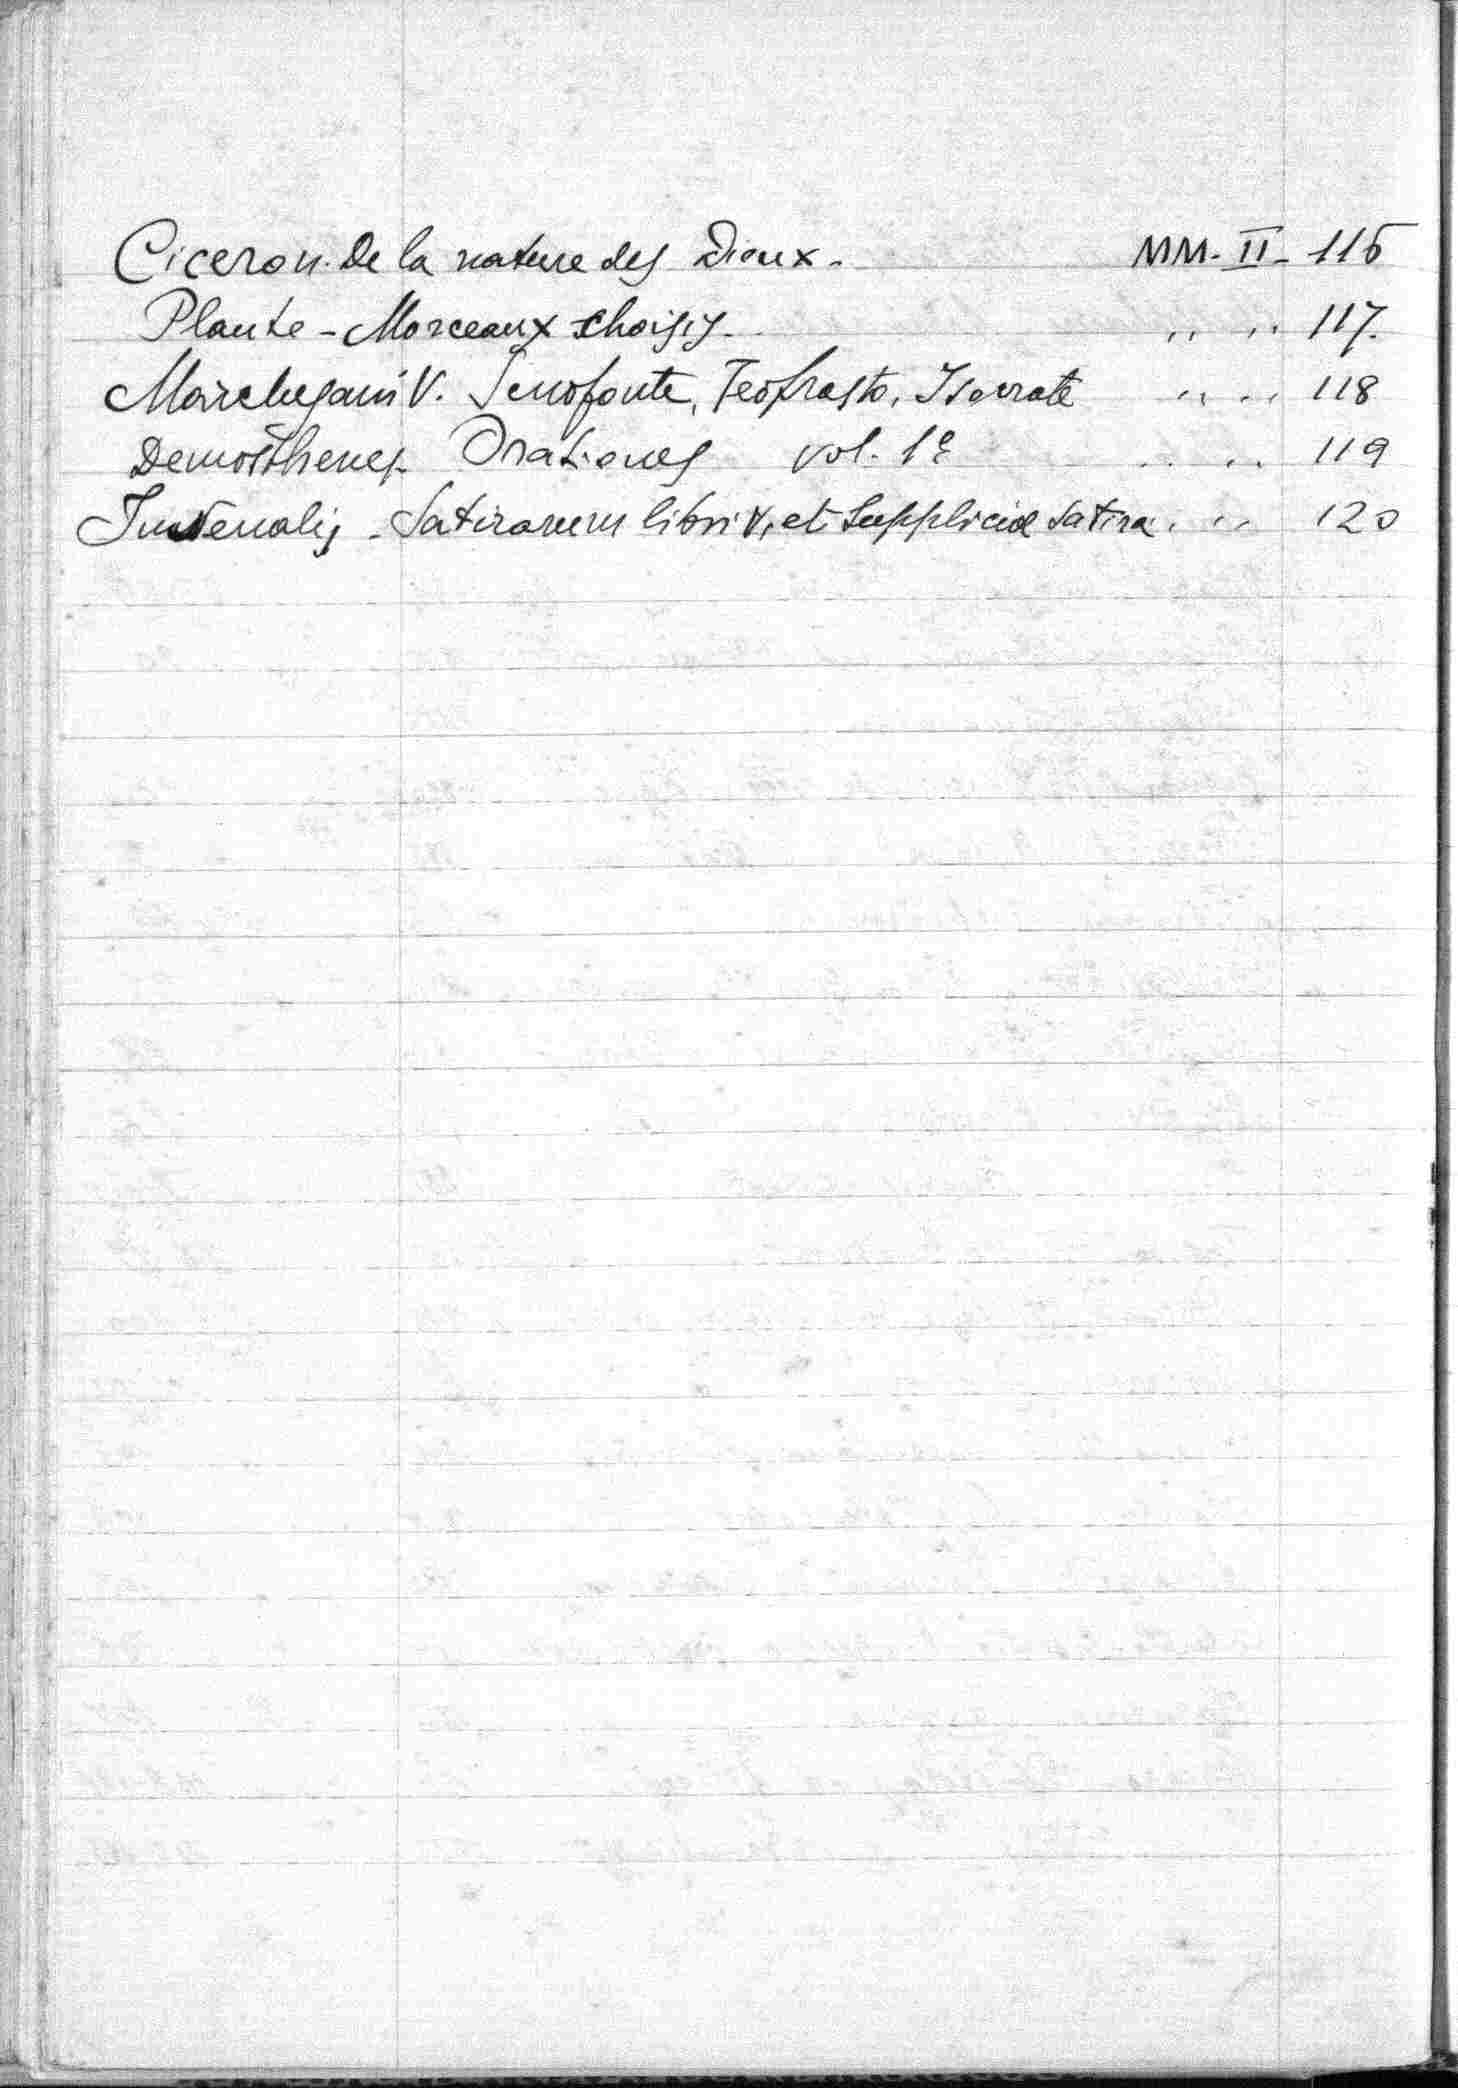 Ciceron. De la nature des Dieux. MM. II - 116
Plaute - Morceaux choisis. " " 117.
Marchesani V. Senofonte, Teofrasto, Isocrate " " 118
Demosthenes. Orationes vol. 1º " " 119
Juvenalis - Satirarum libri V, et Sulpliciæ Satira. " " 120